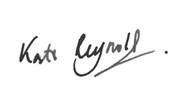 Kate Reynolds.